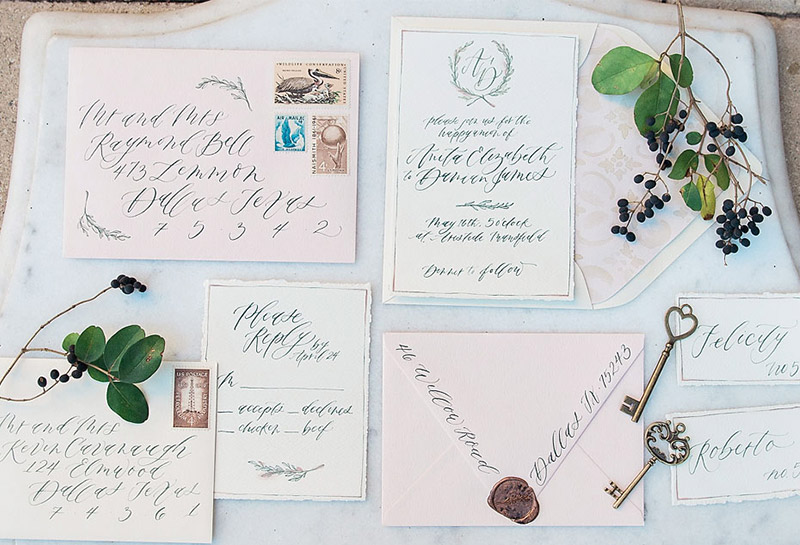 Mr and Mrs
Raymond Bell
473 Lemmon
Dallas Texas
7 5 3 4 2
WILDLIFE CONSERVATION
AIR MAIL
NAISMITH
4¢
A D
please join us for the
happyamen of
Anita Elizabeth
to Damian James
May 16th, 5 o'clock
at
Dinner to follow
Please
Reply by
April 24
m
accepts declines
chicken beef
Mr and Mrs
Keven Cavanaugh
124 Elmwood
Dallas Texas
7 4 3 6 1
U.S. POSTAGE
46 Willow Road
Dallas Tx. 75243
Felicity
no. 5
Roberto
no. 5